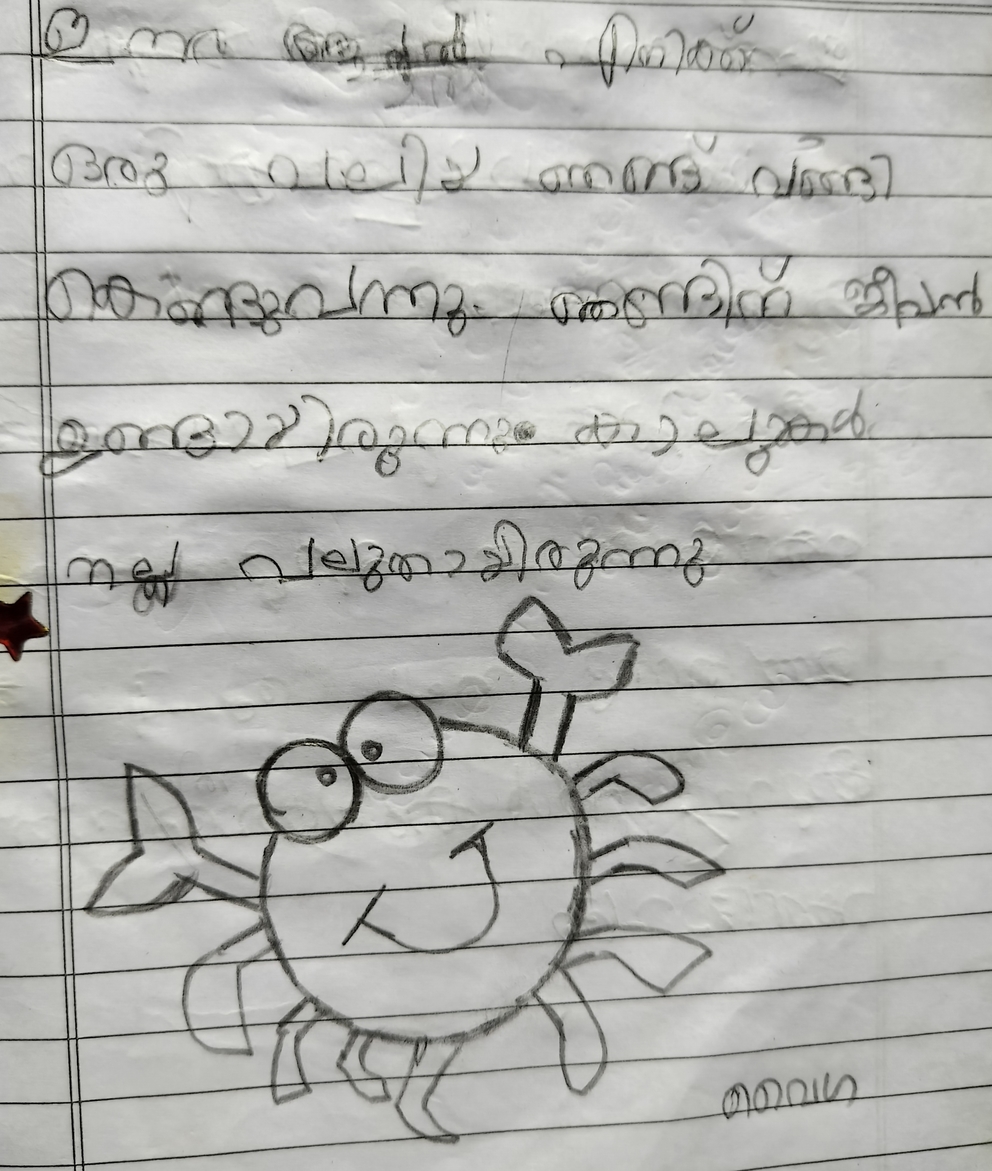 ഇന്ന
ഒരു വലിയ ഞണ്ട് വാങ്ങി
കൊണ്ടുവന്നു. ഞണ്ടിന് ജീവൻ
ഉണ്ടായിരുന്നു. കാലുകൾ
നല്ല വലുതായിരുന്നു
വൈഗ